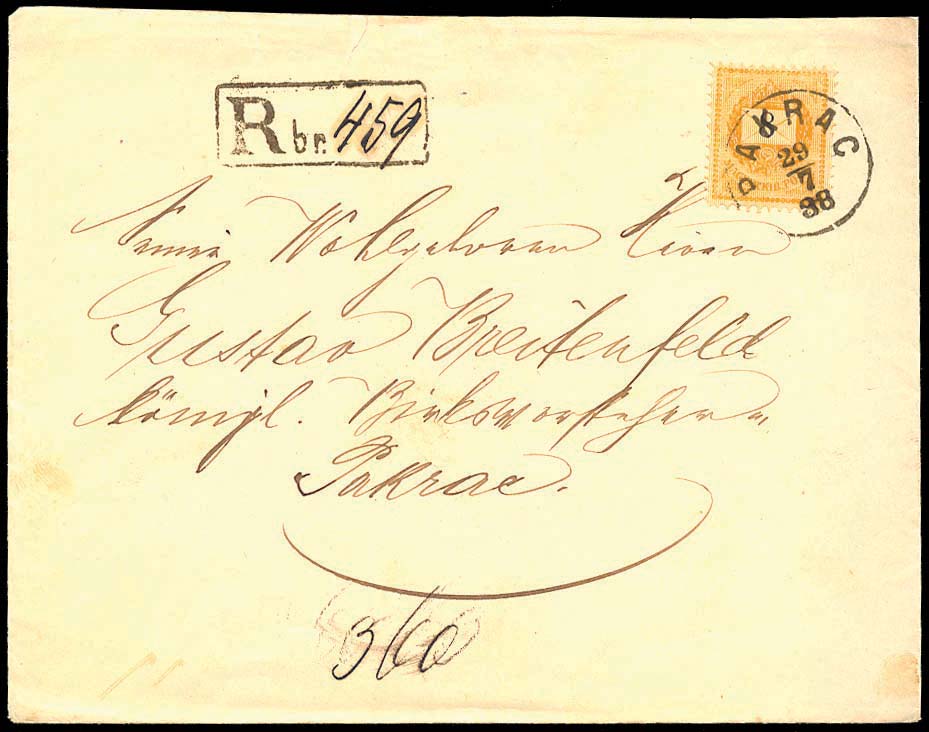 R br. 459
PAKRAC
29
7
88
Wohlgeboren Herrn
Gustav Breitenfeld
königl. Bezirksvorsteher
Pakrac.
360